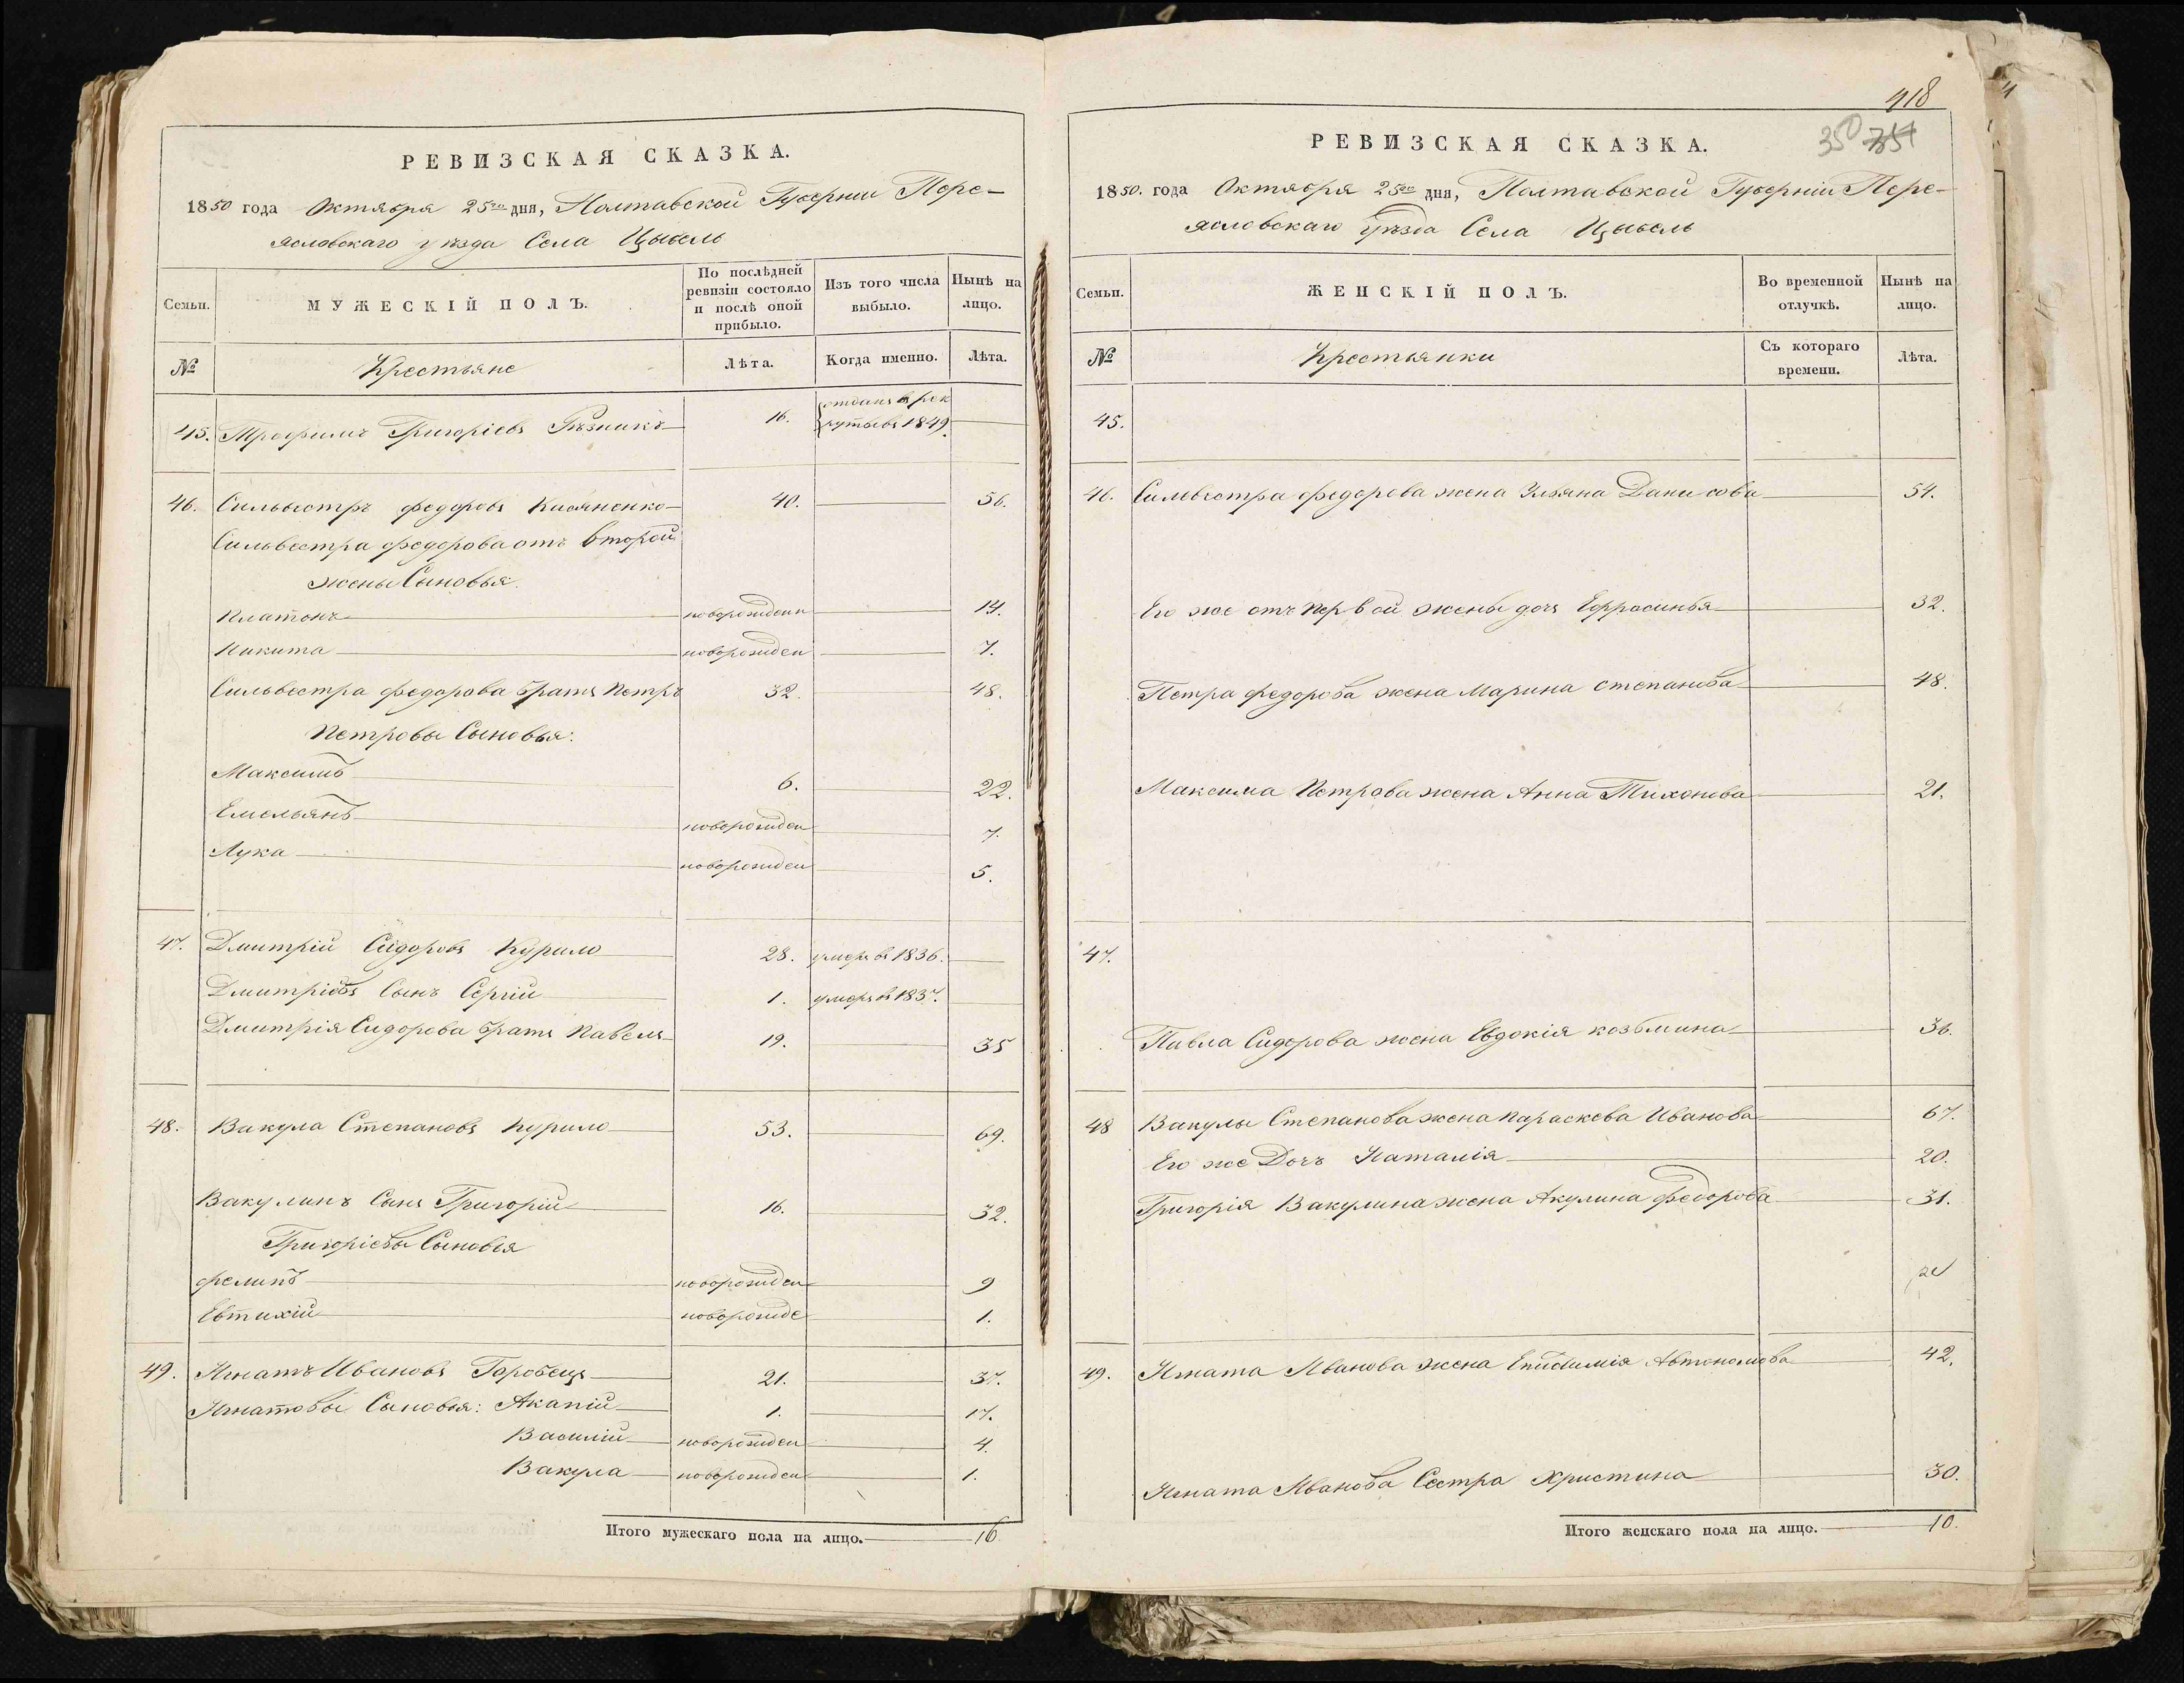 РЕВИЗСКАЯ СКАЗКА.
1850 года Октября 25го дня, Полтавской Губерніи Пере-
яславскаго уѣзда Села Цыбель
Семьи.
МУЖЕСКІЙ ПОЛЪ.
По послѣдней ревизіи состояло и послѣ оной прибыло.
Изъ того числа выбыло.
Нынѣ на лицо.
№
Крестьяне
Лѣта.
Когда именно.
Лѣта.
45. Трофимъ Григоріевъ Рѣзникъ 16. отданъ в рек
рутывъ 1849
46. Сильвестръ Федоровъ Касяненко 40. 56.
Сильвестра Федорова отъ второй
жены Сыновья.
Платонъ новорожден 14.
Никита новорожден 7.
Сильвестра Федорова братъ Петръ 32. 48.
Петровы Сыновья:
Максимъ 6. 22.
Емельянъ новорожден 7.
Лука новорожден 5.
47. Дмитрій Сидоровъ Курило 28. умеръ въ 1836.
Дмитріевъ Сынъ Сергій 1. умеръ въ 1837.
Дмитрія Сидорова братъ Павелъ 19. 35
48. Вакула Степановъ Курило 53. 69.
Вакулинъ Сынъ Григорій 16. 32.
Григоріевы Сыновья
Филипъ новорожден 9
Евтихій новорожде 1.
49. Игнатъ Ивановъ Горобець 21. 37.
Игнатовы Сыновья: Акапій 1. 17.
Василій новорожден 4.
Вакула новорожден 1.
Итого мужескаго пола на лицо. 16.
418
350 354
РЕВИЗСКАЯ СКАЗКА.
1850. года Октября 25го дня, Полтавской Губерніи Пере-
яславскаго Уѣзда Села Цыбель
Семьи.
ЖЕНСКІЙ ПОЛЪ.
Во временной отлучкѣ.
Нынѣ на лицо.
№
Крестьянки
Съ котораго времени.
Лѣта.
45.
46. Сильвестра Федорова жена Ульяна Данилова 54.
Его же отъ первой жены дочь Ефросинья 32.
Петра Федорова жена Марина Степанова 48.
Максима Петрова жена Анна Тихонова 21.
47.
Павла Сидорова жена Евдокія Козьмина 36.
48 Вакулы Степанова жена Параскева Иванова 67.
Его же Дочь Наталія 20.
Григорія Вакулина жена Акулина Федорова 31.
49. Игната Иванова жена Епистимія Автономова 42.
Игната Иванова Сестра Христина 30.
Итого женскаго пола на лицо. 10.